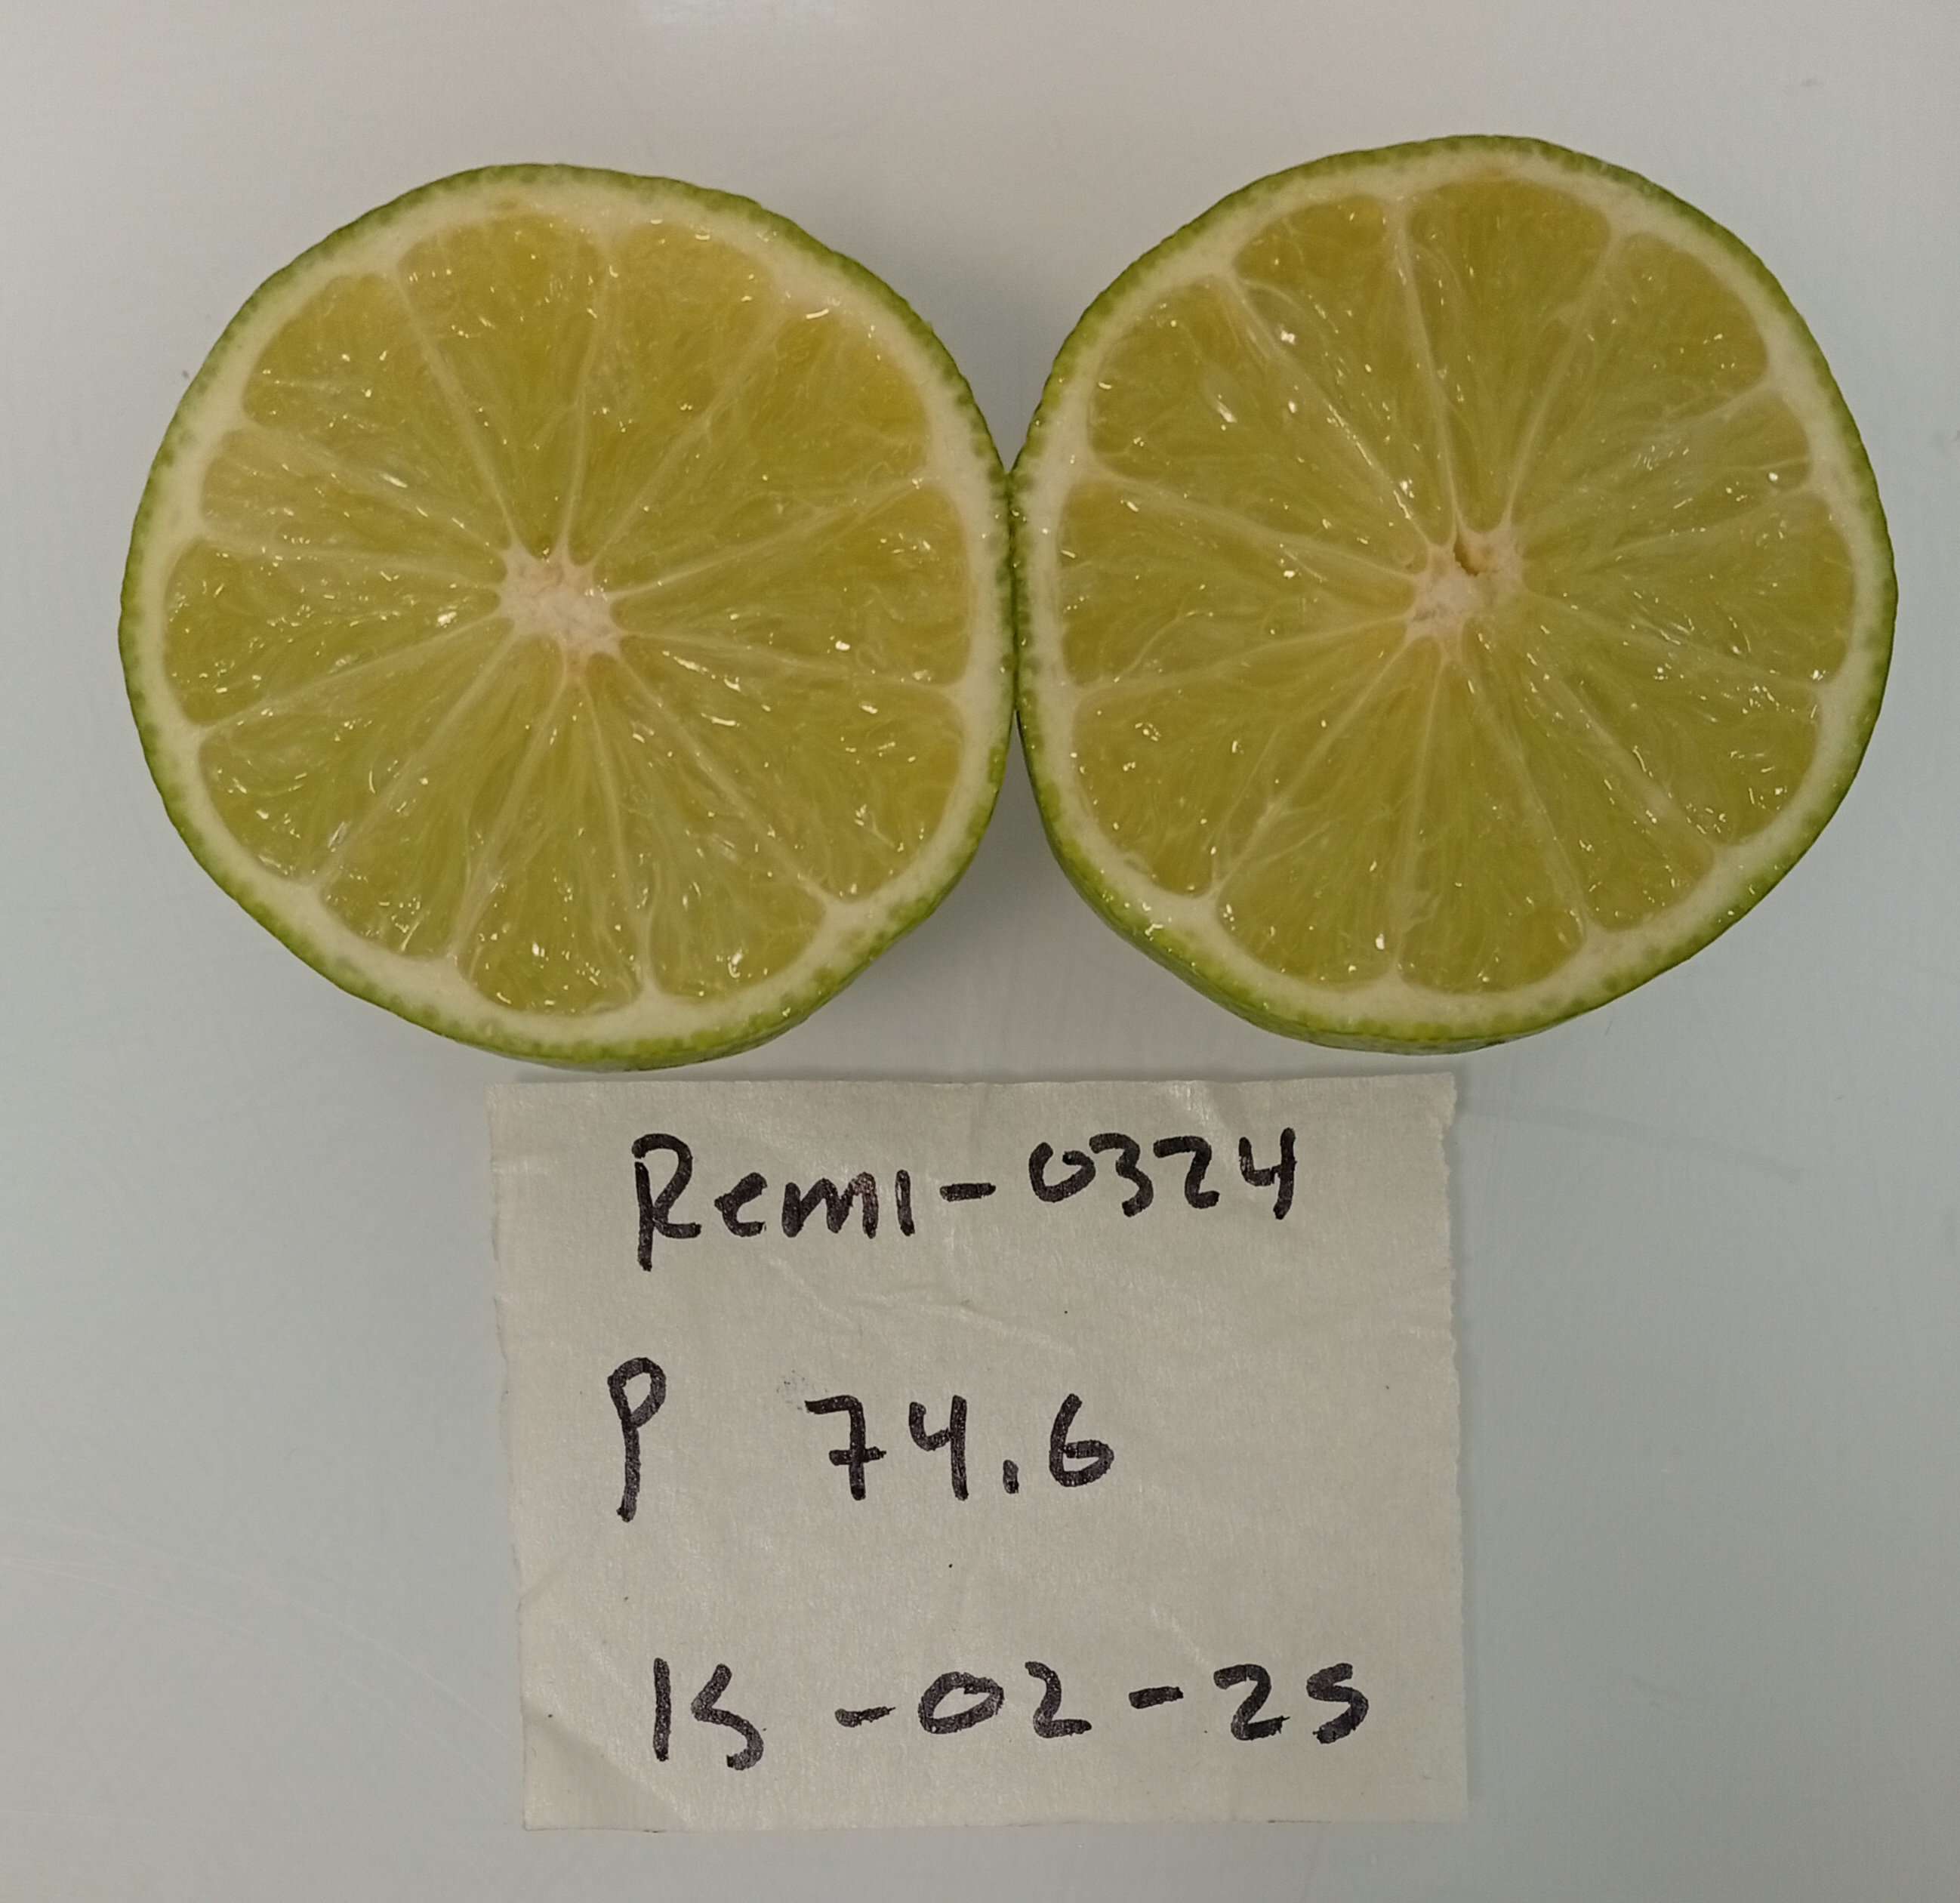 Remi-0324
P 74.6
15-02-25